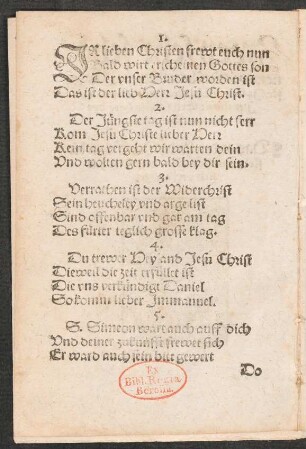 1.
IR lieben Christen frewt euch nun
Bald wirt erscheinen Gottes son
Der vnser Bruder worden ist
Das ist der lieb Herr Jesu Christ.
2.
Der Jüngste tag ist nun nicht ferr
Kom Jesu Christe lieber Herr
Kein tag vergeht wir warten dein
Vnd wolten gern bald bey dir sein.
3.
Verrathen ist der Widerchrist
Sein heucheley vnd arge list
Sind offenbar vnd gar am tag
Des fürter teglich grosse klag.
4.
Du trewer Heyland Jesu Christ
Dieweil die zeit erfüllet ist
Die vns verkündigt Daniel
So komm lieber Immanuel.
5.
S. Simeon wart auch auff dich
Vnd deiner zukunfft frewet sich
Er ward auch sein bitt gewert
Do
Ex
Bibl. Regia
Berolin.